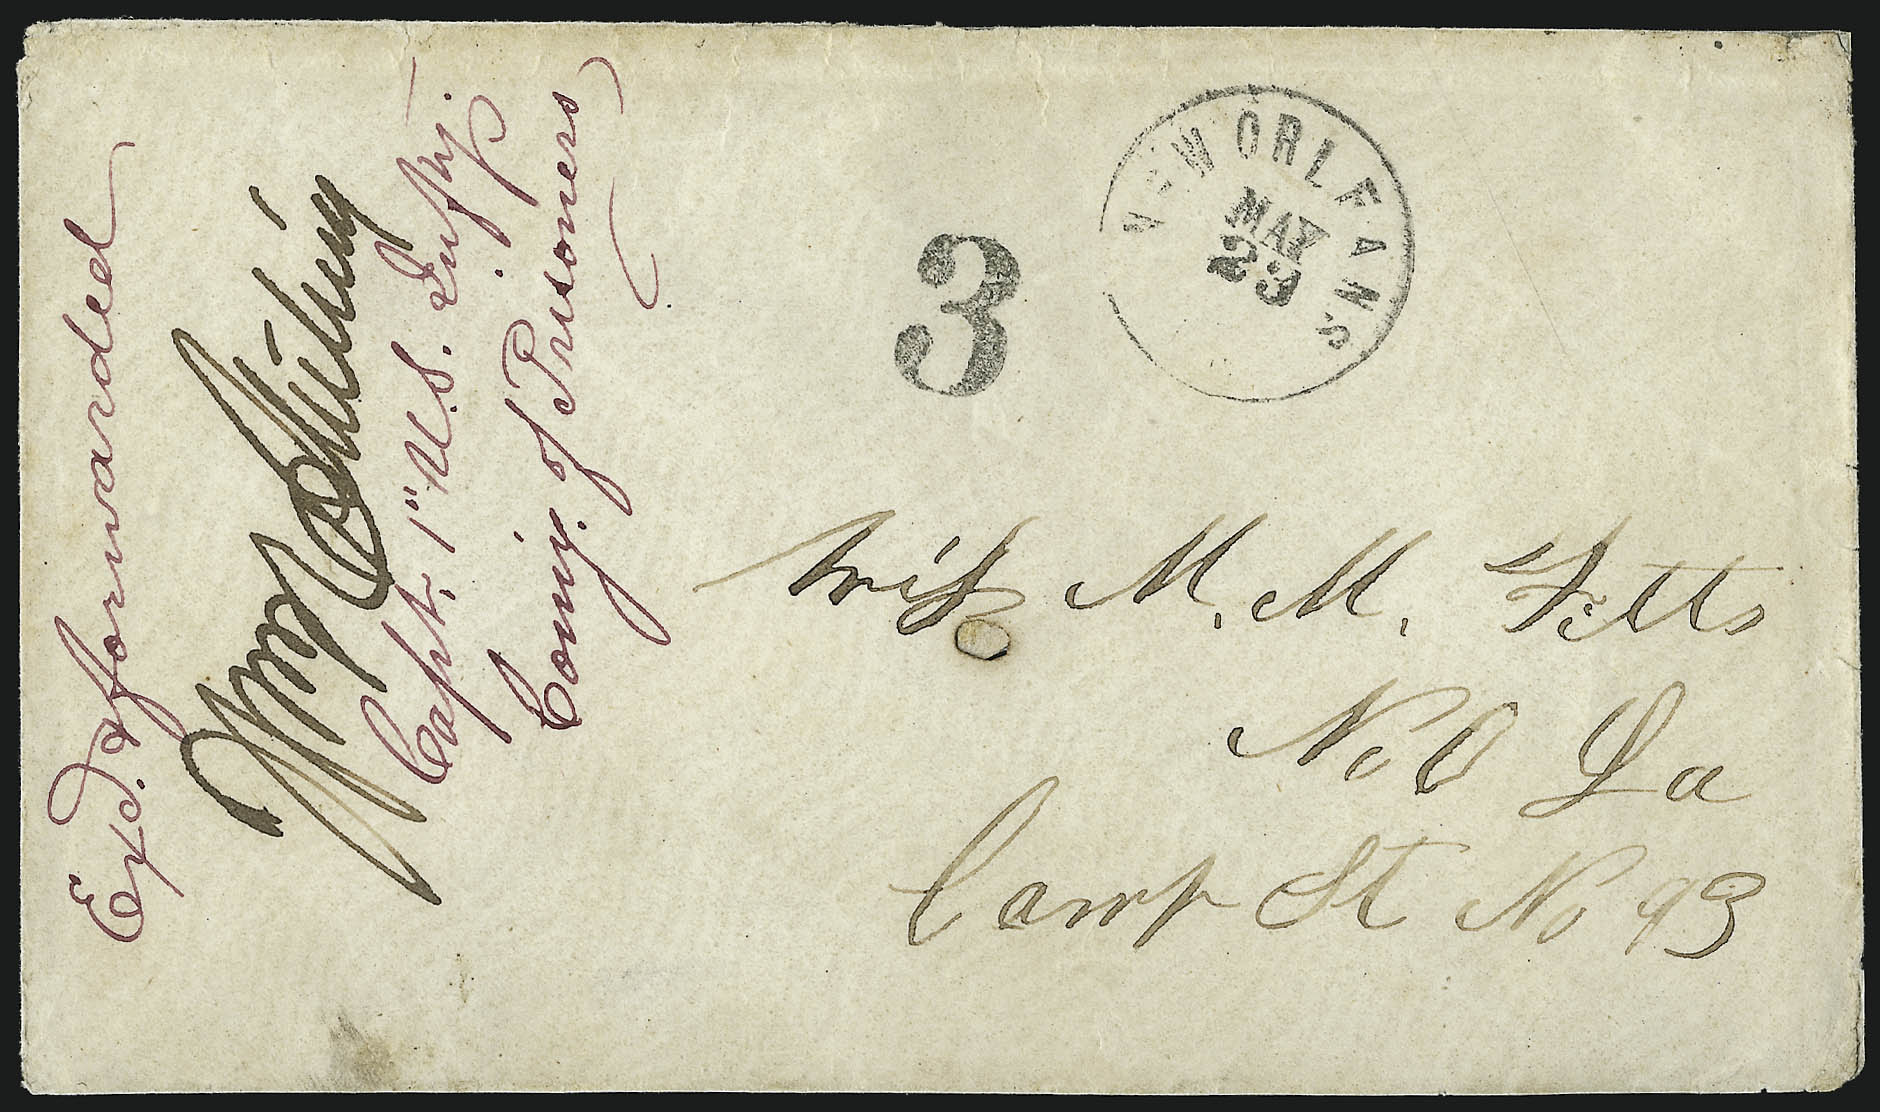 Exd. & forwarded
Capt. 1" U.S. Infty.
Comg. of Prisoners
NEW ORLEANS
MAY
23
3
Miss M. M. Fitts
N. O La
Camp St No 93